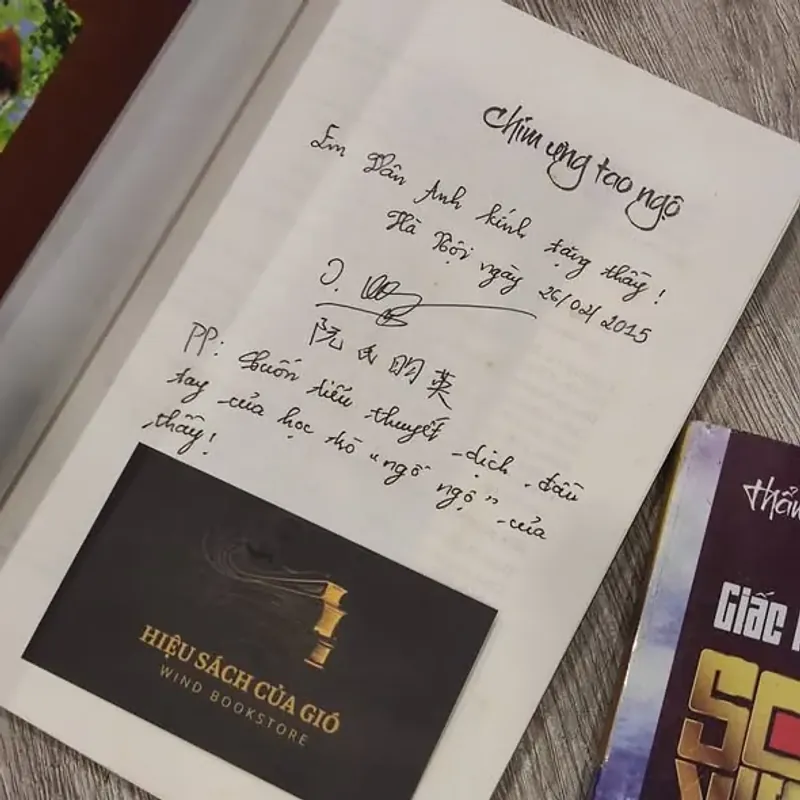 chim ưng tao ngộ
Em Vân Anh kính tặng thầy!
Hà Nội ngày 26/02/2015
阮氏明英
PP: Cuốn tiểu thuyết dịch đầu
tay của học trò "ngố ngộ" của
thầy!
HIỆU SÁCH CỦA GIÓ
WIND BOOKSTORE
Giấc